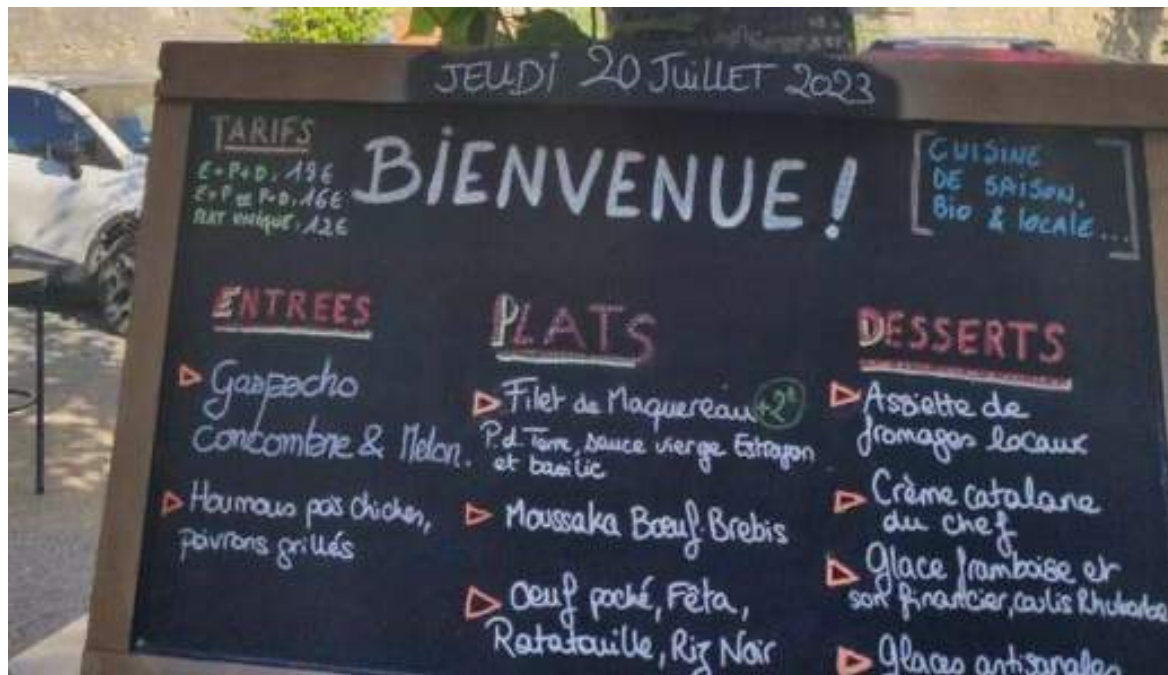 JEUDI 20 JUILLET 2023
TARIFS
E+P+D, 19€
E+P ou P+D, 16€
PLAT UNIQUE, 12€
BIENVENUE !
CUISINE
DE SAISON,
Bio & LOCALE...
ENTREES
Gaspacho
Concombre & Melon.
Houmous pois chiches,
poivrons grillés
PLATS
Filet de Maquereau +2€
P.d.Terre, sauce vierge Estragon
et basilic
Moussaka Bœuf Brebis
Oeuf poché, Fêta,
Ratatouille, Riz Noir
DESSERTS
Assiette de
fromages locaux
Crème catalane
du chef
Glace framboise et
son financier, coulis Rhubarbe
Glaces artisanales